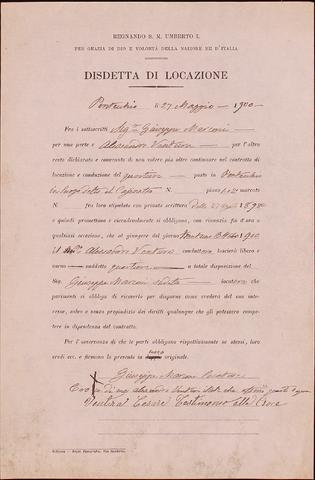 REGNANDO S. M. UMBERTO I.
PER GRAZIA DI DIO E VOLONTÀ DELLA NAZIONE RE D'ITALIA
DISDETTA DI LOCAZIONE
Pontecchio li 27 Maggio 1900
Fra i sottoscritti Sig. Giuseppe Marconi
per una parte e Alessandro Venturi per l'altra
resta dichiarato e convenuto di non volere più oltre continuare nel contratto di
locazione e conduzione del posto in Pontecchio
in luogo detto il N. piano marcato
N. fra loro stipulato con privata scrittura
e quindi promettono e vicendevolmente si obbligano, con rinunzia fin d'ora a
qualsiasi eccezione, che al giungere del giorno 1900
il Alessandro Venturi conduttore, lascierà libero e
vacuo suddetto a totale disposizione del
Sig. Giuseppe Marconi locatore che
parimenti si obbliga di riceverlo per disporne come crederà del suo inte-
resse, salvo e senza pregiudizio dei diritti qualunque che gli potessero compe-
tere in dipendenza del contratto.
Per l'osservanza di che le parti obbligano rispettivamente se stessi, loro
eredi ecc. e firmano la presente in originale.
Giuseppe Marconi
Croce di me Alessandro Venturi che
Venturi Cesare Testimonio alla Croce